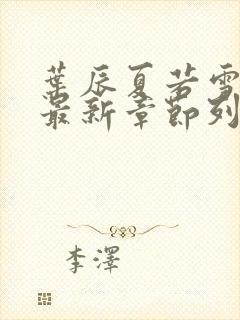 葉辰夏若雪
最新章節列
李澤